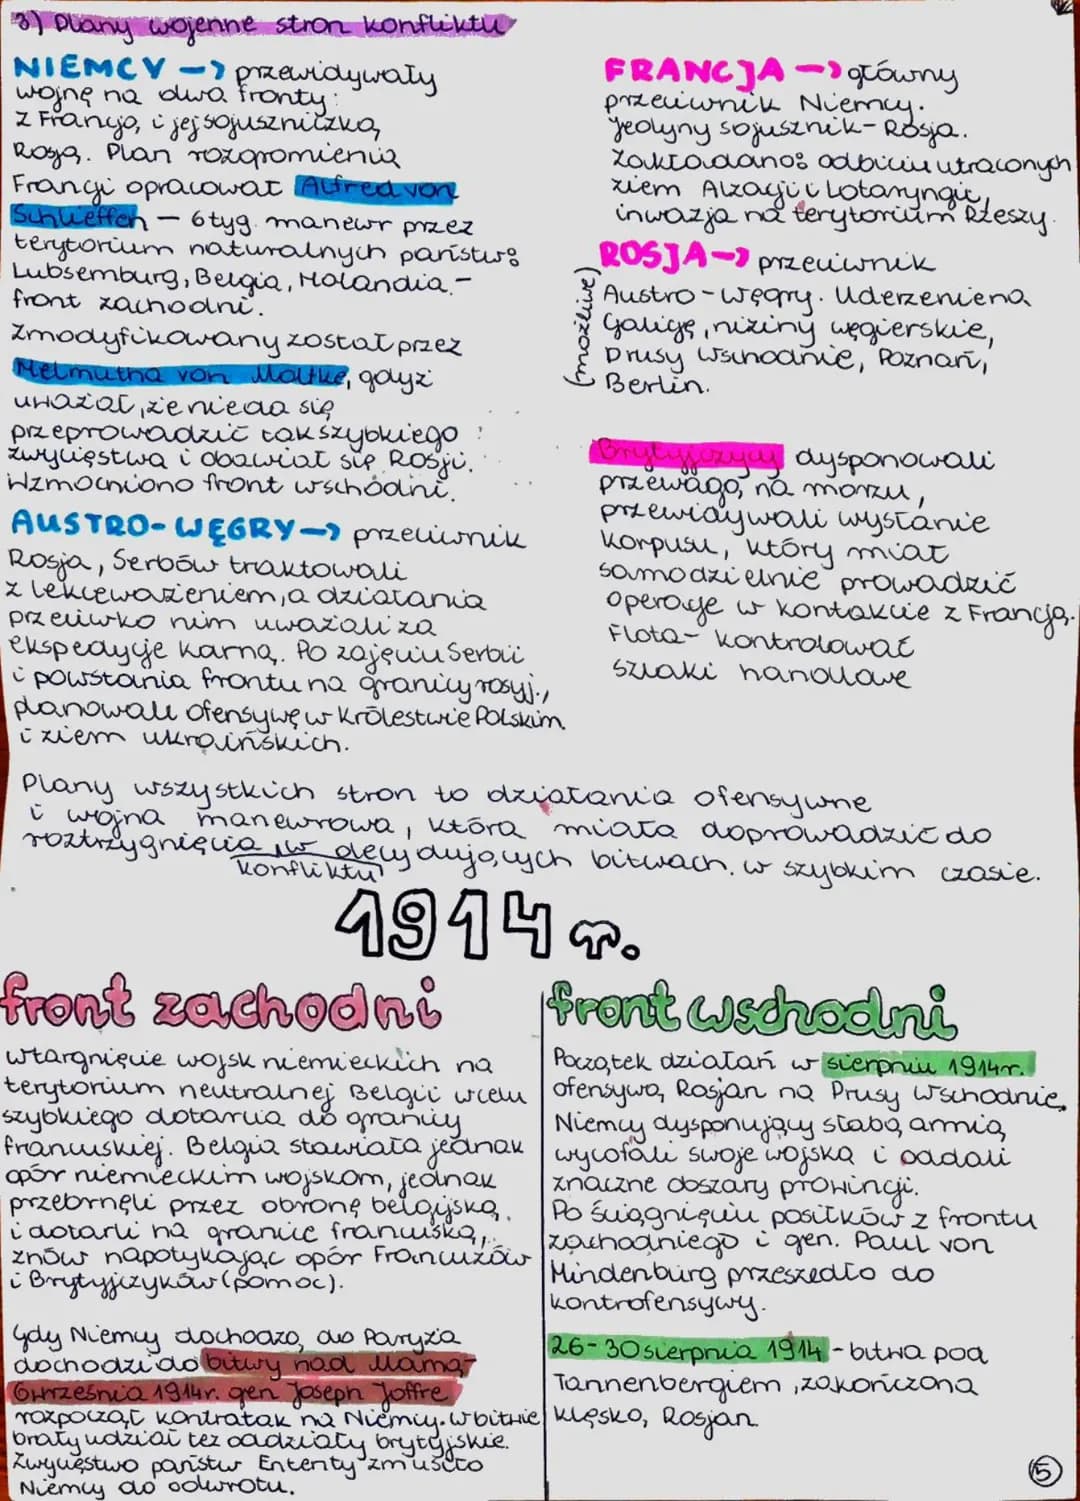 3) Plany wojenne stron konfliktu
NIEMCY -> przewidywały
wojnę na dwa fronty:
z Francją, i jej sojuszniczką,
Rosją. Plan rozgromienia
Francji opracował Alfred von
Schlieffen - 6 tyg. manewr przez
terytorium naturalnych państw:
Luksemburg, Belgia, Holandia -
front zachodni.
Zmodyfikowany został przez
Helmutha von Moltke, gdyż
uważał, że nie da się
przeprowadzić tak szybkiego
zwycięstwa i obawiał się Rosji.
Wzmocniono front wschodni.
AUSTRO-WĘGRY -> przeciwnik
Rosja, Serbów traktowali
z lekceważeniem, a działania
przeciwko nim uważali za
ekspedycje karną. Po zajęciu Serbii
i powstania frontu na granicy rosyj.,
planowali ofensywę w Królestwie Polskim
i ziem ukraińskich.
FRANCJA -> główny
przeciwnik Niemcy.
Jedyny sojusznik - Rosja.
Zakładano: odbiciu utraconych
ziem Alzacji i Lotaryngii,
inwazja na terytorium Rzeszy.
ROSJA -> przeciwnik
Austro-Węgry. Uderzenie na
Galicję, niziny węgierskie,
(możliwe) Prusy Wschodnie, Poznań,
Berlin.
Brytyjczycy dysponowali
przewagą na morzu,
przewidywali wysłanie
korpusu, który miał
samodzielnie prowadzić
operacje w kontakcie z Francją.
Flota - kontrolować
szlaki handlowe
Plany wszystkich stron to działania ofensywne
i wojna manewrowa, która miała doprowadzić do
roztrzygnięcia konfliktu w decydujących bitwach. w szybkim czasie.
1914 r.
front zachodni
wtargnięcie wojsk niemieckich na
terytorium neutralnej Belgii w celu
szybkiego dotarcia do granicy
francuskiej. Belgia stawiała jednak
opór niemieckim wojskom, jednak
przebrnęli przez obronę belgijską,
i dotarli na granicę francuską,
znów napotykając opór Francuzów
i Brytyjczyków (pomoc).
Gdy Niemcy dochodzą do Paryża
dochodzi do bitwy nad Marną -
6 września 1914 r. gen Joseph Joffre
rozpoczął kontratak na Niemcy. w bitwie
brały udział też oddziały brytyjskie.
Zwycięstwo państw Ententy zmusiło
Niemcy do odwrotu.
front wschodni
Początek działań w sierpniu 1914r.
ofensywą Rosjan na Prusy Wschodnie.
Niemcy dysponujący słabą armią
wycofali swoje wojska i oddali
znaczne obszary prowincji.
Po ściągnięciu posiłków z frontu
zachodniego i gen. Paul von
Hindenburg przeszedło do
kontrofensywy.
26-30 sierpnia 1914 - bitwa pod
Tannenbergiem, zakończona
klęską Rosjan
5